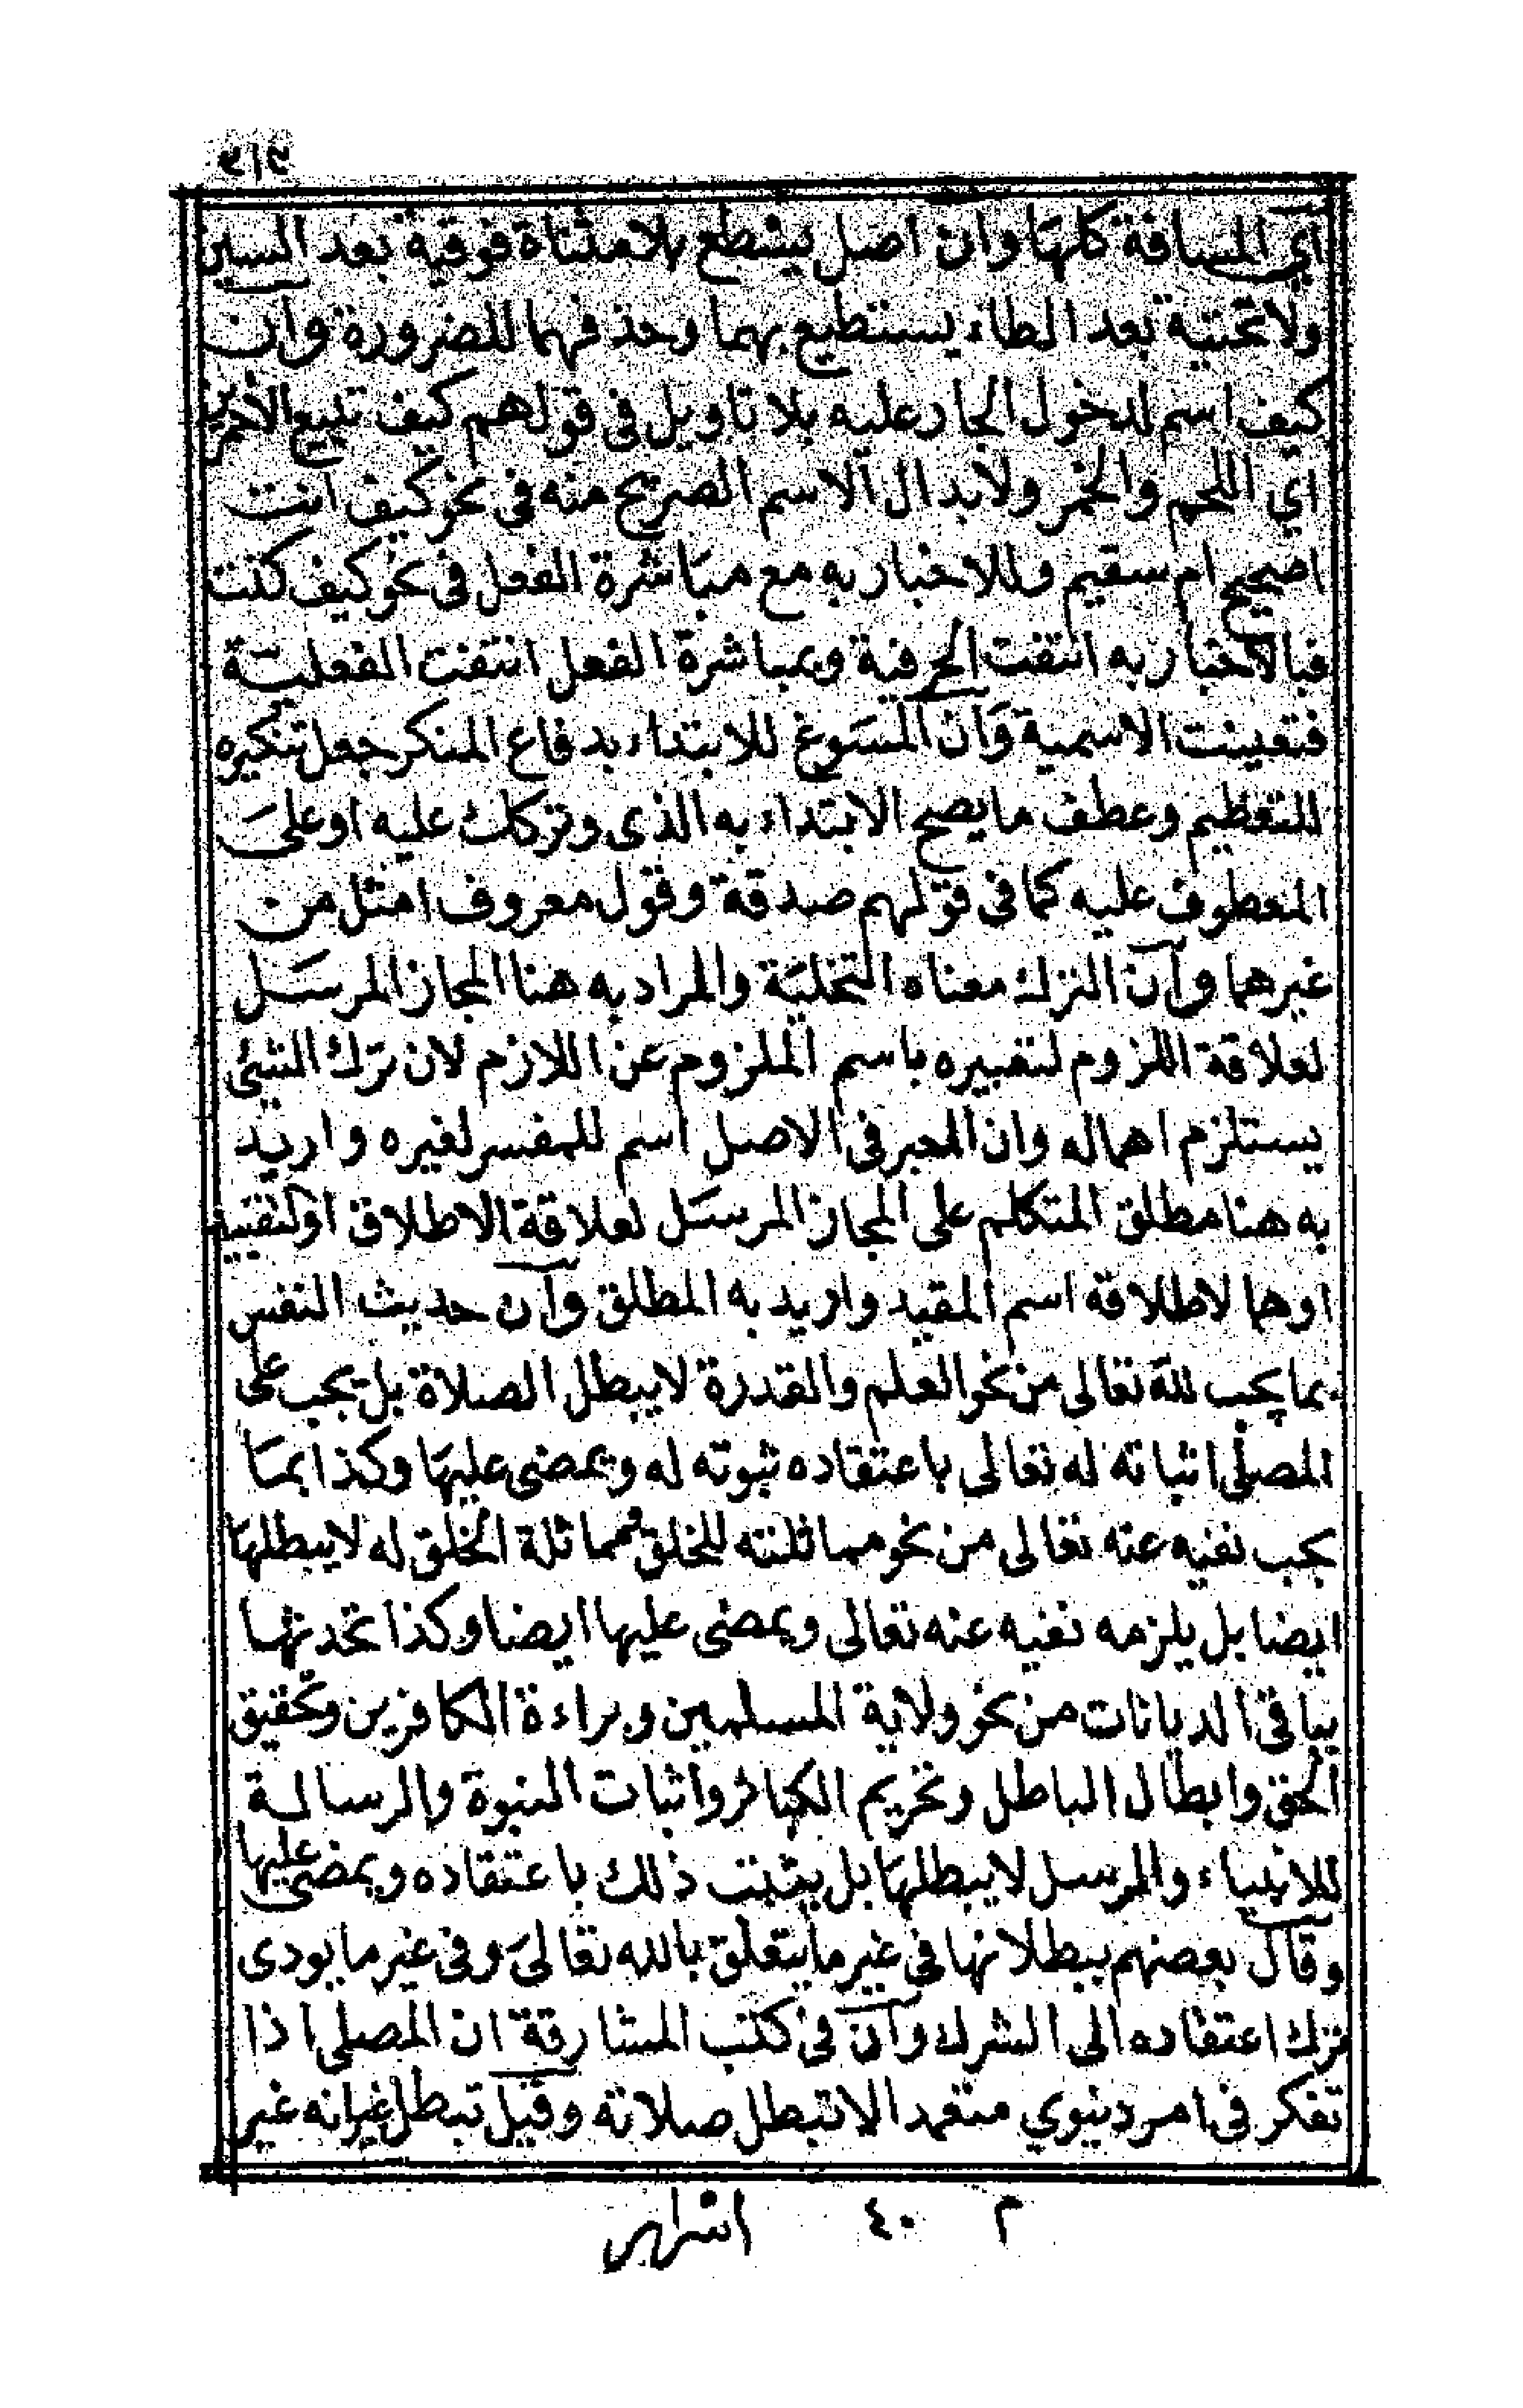 أي المسافة كلها وان اصل يسطع بلا مثناة فوقية بعد السين
ولا تحتية بعد الطاء يستطيع بهما وحذفهما للضرورة وان
كيف اسم لدخول الجار عليه بلا تاويل فى قولهم كيف تبيع الأحمرين
اي اللحم والخمر ولابدال الاسم الصريح منه فى نحو كيف انت
اصحيح ام سقيم وللاخبار به مع مباشرة الفعل فى نحو كيف كنت
فبالاخبار به انتفت الحرفية وبمباشرة الفعل انتفت الفعلية
فتعينت الاسمية وَآن المسَوغ للابتداء بدفاع المنكر جعل تنكيره
للتعظيم وعطف ما يصح الابتداء به الذى وتركك عليه او علىَ
المعطوف عليه كما فى قولهم صدقة وقول معروف امثل من
غيرهما وآن الترك معناه التخليَة والمراد به هنا المجاز المرسَل
لعلاقة اللزوم لتعبيره باسم الملزوم عن اللازم لان ترك الشئي
يستلزم اهماله وان المحبر فى الاصل اسم للمفسر لغيره واريد
به هنا مطلق المتكلم على المجاز المرسَل لعلاقة الاطلاق او التقييد
اوهما لاطلاقة اسم المقيد واريد به المطلق وآن حديث النفس
بما يجب لله تعالى من نحو العلم والقدرة لا يبطل الصلاة بل يجب على
المصلى اثباته له تعالى باعتقاده ثبوته له ويمضى عليهَا وكذا بمَا
يجب نفيه عنه تعالى من نحو مماثلته للخلق ومماثلة الخلق له لا يبطلهَا
ايضا بل يلزمه نفيه عنه تعالى ويمضى عليها ايضا وكذا تحدثها
بباقى الديانات من نحو ولاية المسلمين وبراءة الكافرين وتحقيق
الحق وابطال الباطل وتحريم الكبائر واثبات النبوة والرسالة
للانبياء والمرسل لا يبطلهَا بل يثبت ذلك باعتقاده ويمضى عليها
وقال بعضهم ببطلانها فى غير ما يتعلق بالله تعالىَ وفى غير ما يودى
ترك اعتقاده الى الشرك وآن فى كتب المشارقة ان المصلى اذا
تفكر فى امر دنيوي متعمدا لا تبطل صلاته وقيل تبطل غير انه غير
م ٤٠